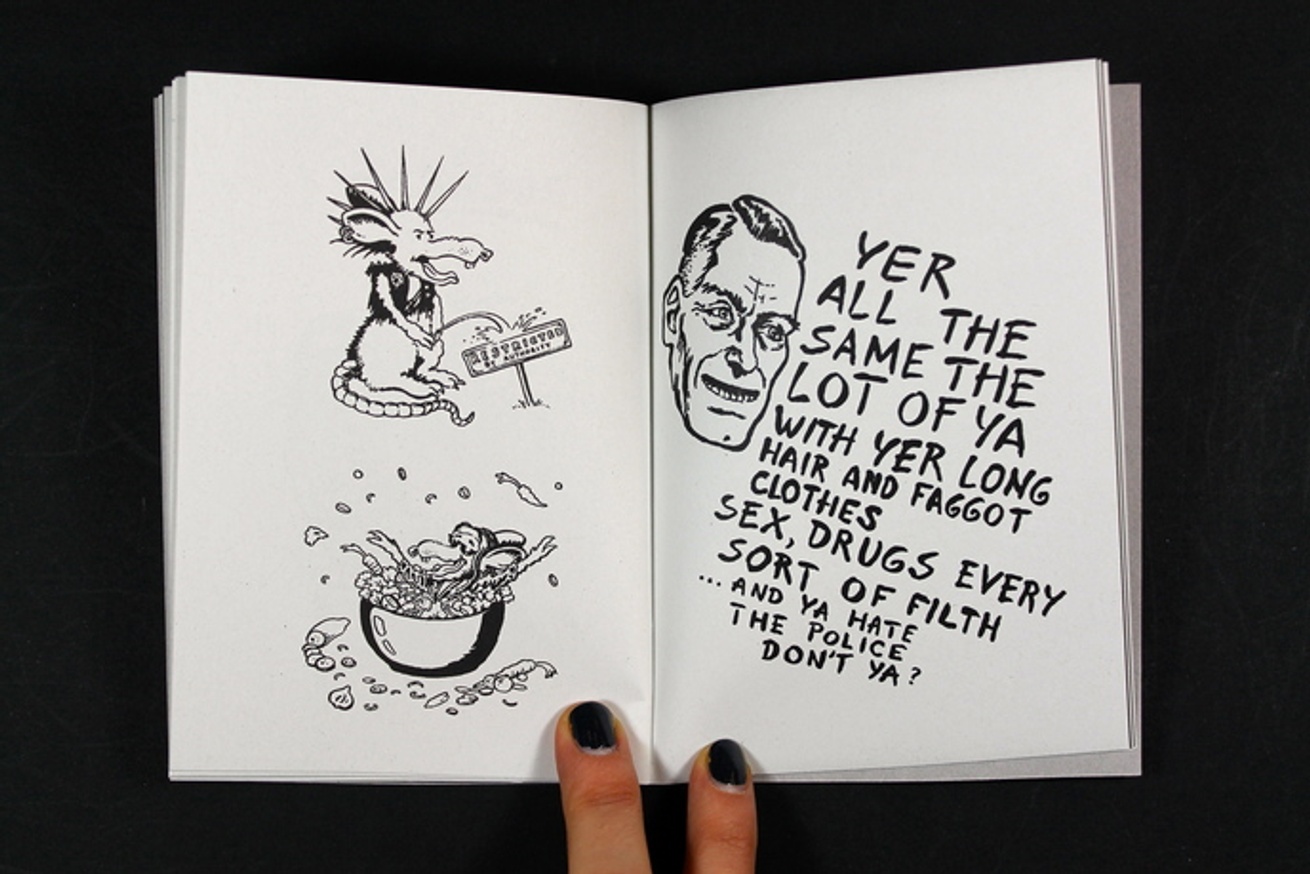 RESTRICTED
BY AUTHORITY
YER
ALL THE
SAME THE
LOT OF YA
WITH YER LONG
HAIR AND FAGGOT
CLOTHES
SEX, DRUGS EVERY
SORT OF FILTH
...AND YA HATE
THE POLICE
DON'T YA?